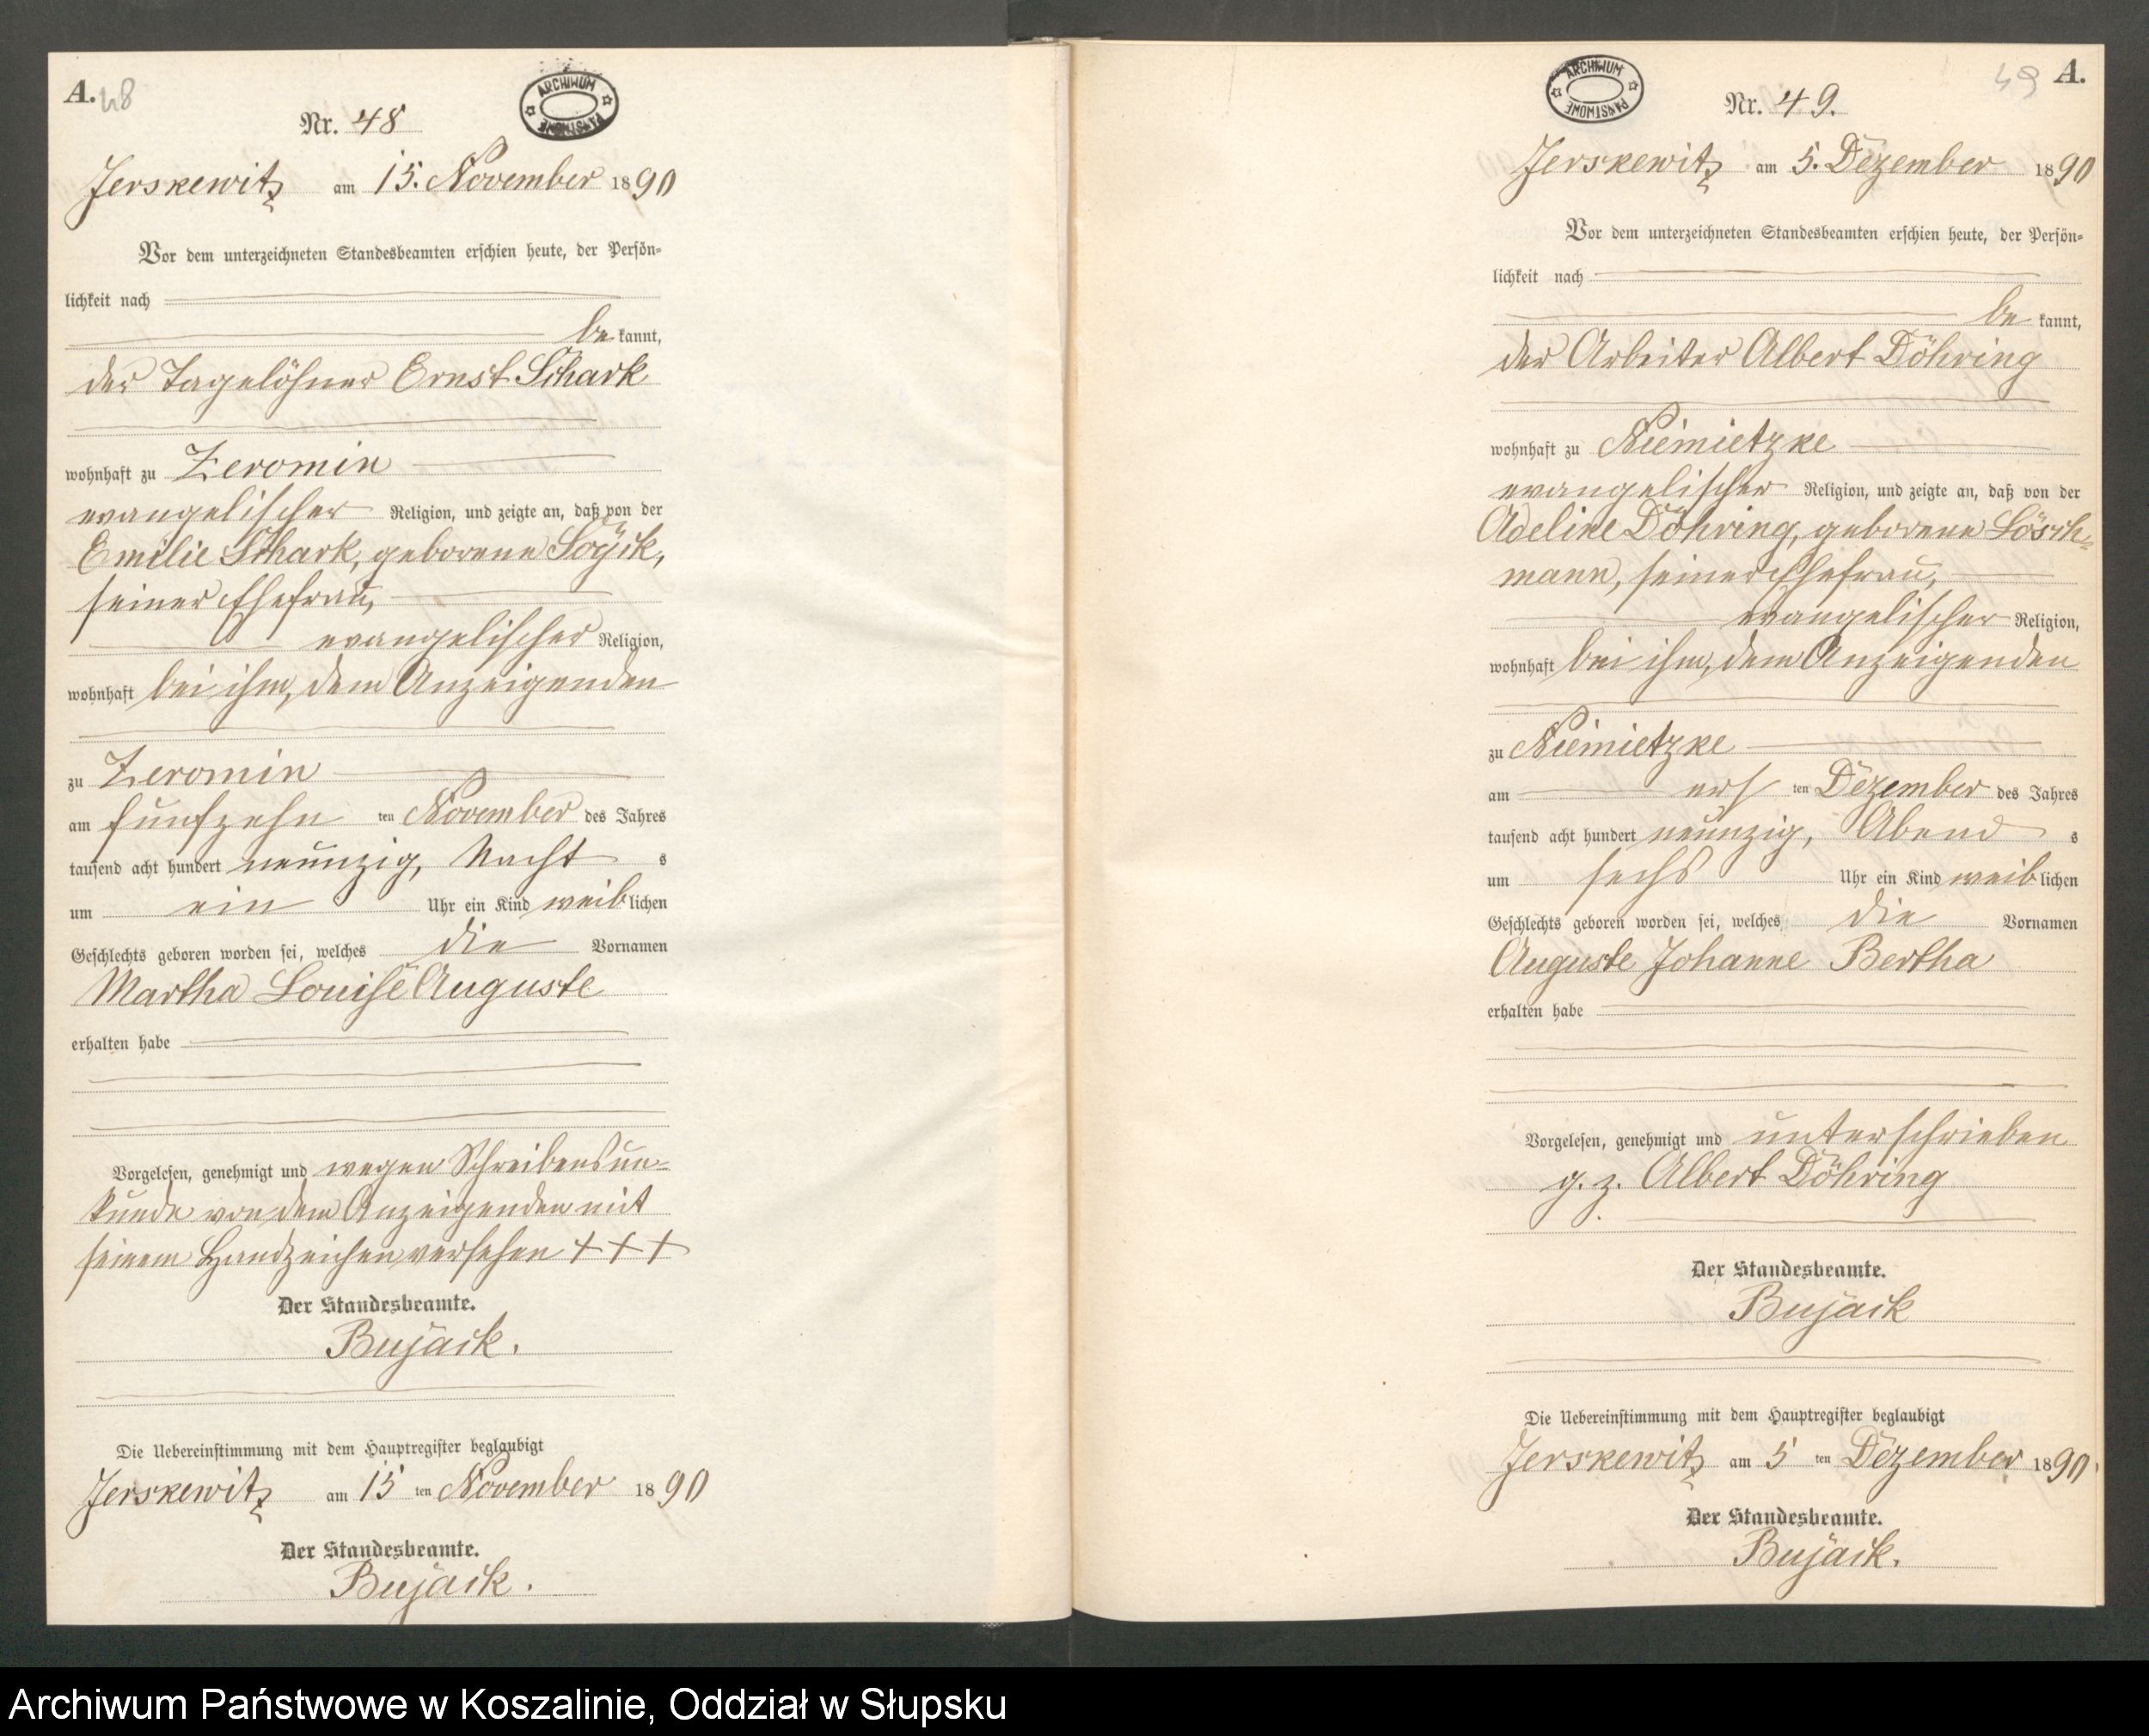 A. 48
ARCHIWUM PAŃSTWOWE
Nr. 48
Jerskewitz am 15. November 1890
Vor dem unterzeichneten Standesbeamten erschien heute, der Persön-
lichkeit nach
be kannt,
der Tagelöhner Ernst Schark
wohnhaft zu Zeromin
evangelischer Religion, und zeigte an, daß von der
Emilie Schark, geborene
seiner Ehefrau,
evangelischer Religion,
wohnhaft bei ihm, dem Anzeigenden
zu Zeromin
am fünfzehn ten November des Jahres
tausend acht hundert neunzig, Nacht s
um ein Uhr ein Kind weib lichen
Geschlechts geboren worden sei, welches die Vornamen
Martha Louise Auguste
erhalten habe
Vorgelesen, genehmigt und wegen Schreibensun-
kunde von dem Anzeigenden mit
seinem Handzeichen versehen +++
Der Standesbeamte.
Bujack.
Die Uebereinstimmung mit dem Hauptregister beglaubigt
Jerskewitz am 15 ten November 1890
Der Standesbeamte.
Bujack.
49 A.
ARCHIWUM PAŃSTWOWE
Nr. 49.
Jerskewitz am 5. Dezember 1890
Vor dem unterzeichneten Standesbeamten erschien heute, der Persön-
lichkeit nach
be kannt,
der Arbeiter Albert Döhring
wohnhaft zu Niemietzke
evangelischer Religion, und zeigte an, daß von der
Adeline Döhring, geborene Lösch-
mann, seiner Ehefrau,
evangelischer Religion,
wohnhaft bei ihm, dem Anzeigenden
zu Niemietzke
am ers ten Dezember des Jahres
tausend acht hundert neunzig, Abend s
um sechs Uhr ein Kind weib lichen
Geschlechts geboren worden sei, welches die Vornamen
Auguste Johanne Bertha
erhalten habe
Vorgelesen, genehmigt und unterschrieben
g. z. Albert Döhring
Der Standesbeamte.
Bujack
Die Uebereinstimmung mit dem Hauptregister beglaubigt
Jerskewitz am 5 ten Dezember 1890.
Der Standesbeamte.
Bujack.
Archiwum Państwowe w Koszalinie, Oddział w Słupsku